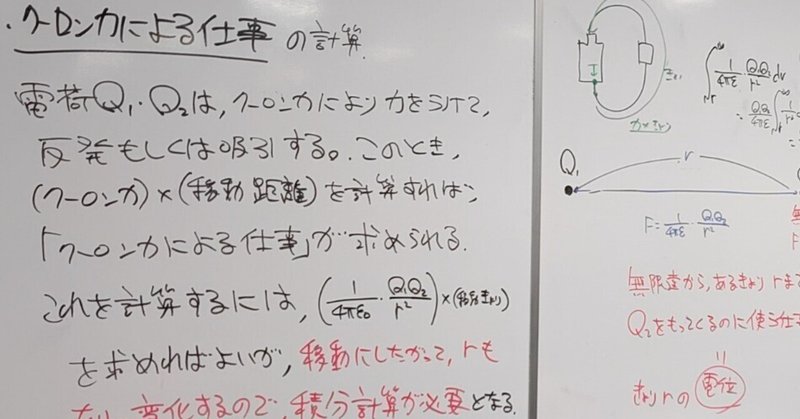 ・クーロン力による仕事の計算
電荷Q₁・Q₂は、クーロン力により力をうけて、
反発もしくは吸引する。このとき、
(クーロン力)×(移動距離)を計算すれば、
「クーロン力による仕事」が求められる。
これを計算するには、(1/4πε₀・Q₁Q₂/r²)×(移動きょり)
を求めればよいが、移動にしたがって、rも
変化するので、積分計算が必要となる。
I
力×きょり
∫r^∞ 1/4πε・Q₁Q₂/r² dr
= Q₁Q₂/4πε ∫r^∞ 1/r²
Q₁
r
F=1/4πε・Q₁Q₂/r²
無限遠から、あるきょりrま
Q₂をもってくるのに使う仕
=
きょりrの電位